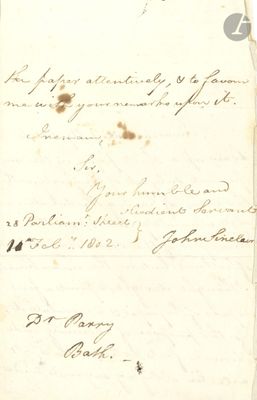 the paper attentively, & to favour
me with your remarks upon it.
I remain,
Sir,
Your humble and
Obedient Servant
28 Parliamt. Street
Feby. 1802.
John Sinclair
Dr Parry
Bath.